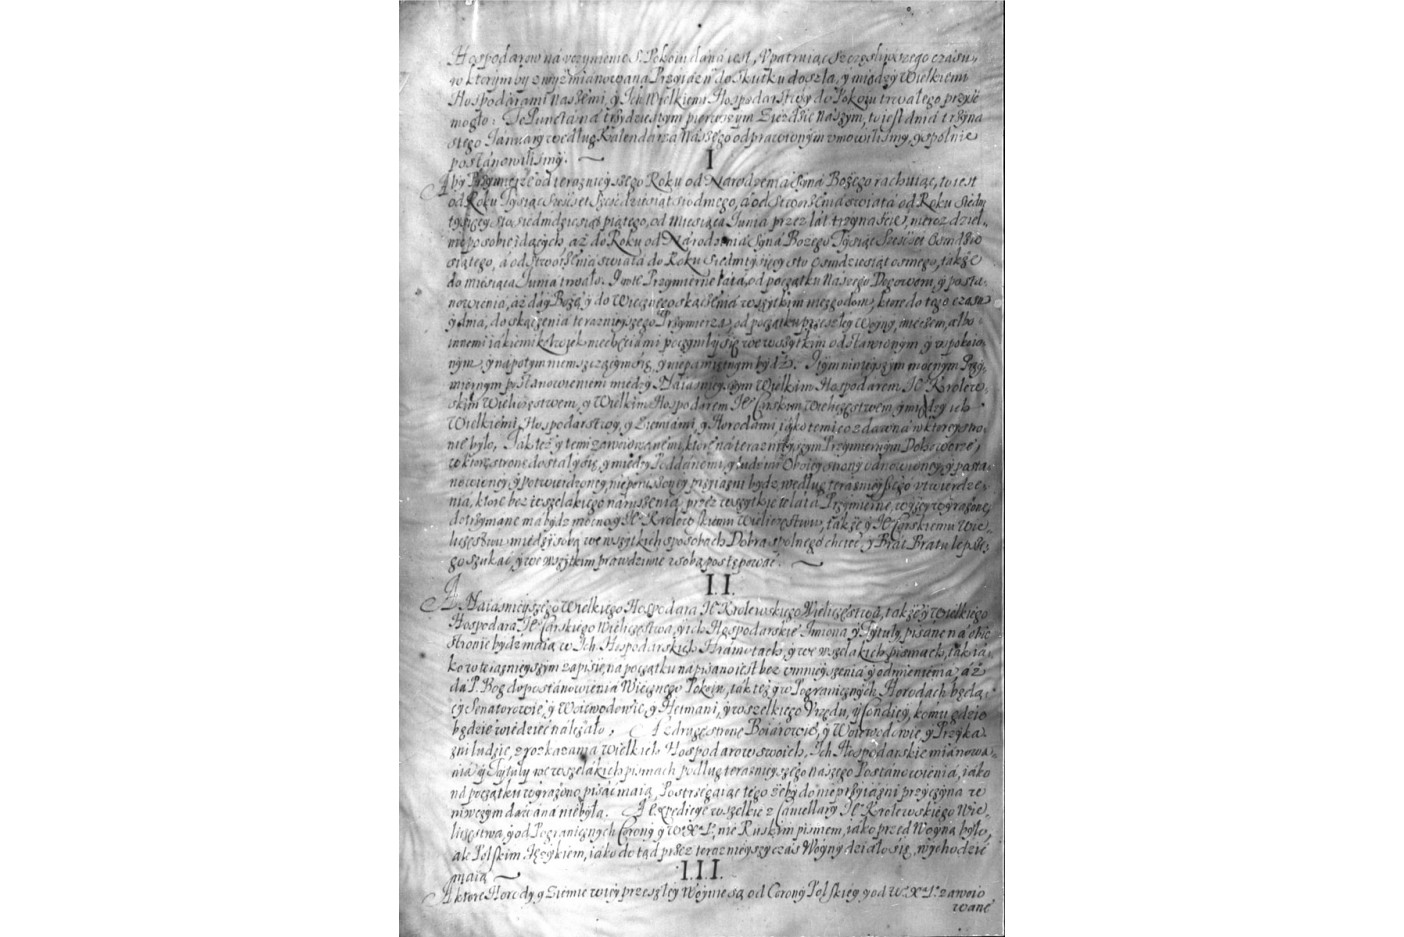 Hospodarow na uczynienie S. Pokoiu dana iest, Upatruiąc szczęsliwszego czasu,
w ktorymby zwyż mianowana Przyiazń do skutku doszła, y między Wielkiemi
Hospodarami naszemi, y Ich Wielkiemi Hospodarstwy do Pokoiu trwałego przyść
mogło: Te Puncta na trzydziestym pierwszym Zieździe naszym, to iest dnia trzyna
stego Ianuary według Kalendarza naszego odprawionym umowilismy, y spolnie
postanowilismy.
I
Aby Przymierze od teraznieyszego Roku od Narodzenia Syna Bożego rachuiąc, to iest
od Roku Tysiąc Szescset Szescdziesiąt siodmego, a od stworzenia swiata od Roku siedm
tysięcy sto siedmdziesiąt piątego, od miesiąca Iunia przez lat trzynascie, nierozdziel-
nie po sobie idących, aż do Roku od Narodzenia Syna Bożego Tysiąc Szescset Osmdzie
siątego, a od stworzenia swiata do Roku siedmtysięcy sto osmdziesiąt osmego, także
do miesiąca Iunia trwało. Y w te Przymierne lata, od początku naszego Dogoworu, y posta-
nowienia, aż da y Boże y do Wiecznego skączenia wszytkim niezgodom, ktore do tego czasu
y dnia, do skączenia teraznieyszego Przymierza, od początku przeszłey Woyny, mieczem, albo
innemi iakiemikolwiek niechęciami poczyniły się, we wszytkim odstawionym, y uspokoio
nym, y napotym niemszczącym się, y niepamiętnym bydź. Y tym ninieyszym mocnym Przy-
miernym postanowieniem między Naiasnieyszym Wielkim Hospodarem IE° Krolew-
skim Wieliczęstwem, y Wielkim Hospodarem IE° Carskim Wieliczęstwem, y między ich
Wielkiemi Hospodarstwy, y Ziemiami, y Horodami, iako temi co z dawna w ktorey stro
nie było, Tak też y temi zawoiowanemi, ktore na teraznieyszym Przymiernym Dohoworze,
w ktorą stronę dostały się, y między Poddanemi, y ludźmi Oboiey strony odnowioney, y posta-
nowioney, y potwierdzoney nieporuszoney przyiazni bydz, według teraznieyszego utwierdze-
nia, ktore bez wszelakiego naruszenia, przez wszytkie te lata Przymierne, wyżey wyrażone,
dotrzymane ma bydz mocno, y IE° Krolewskiemu Wieliczęstwu, także y IE° Carskiemu Wie-
liczęstwu, między sobą we wszytkich sposobach Dobra spolnego chcieć, y Brat Bratu lepsze-
go szukać, y we wszytkim prawdziwie z sobą postępować.
II.
A Naiasnieyszego Wielkiego Hospodara IE° Krolewskiego Wieliczęstwa, także y Wielkiego
Hospodara IE° Carskiego Wieliczęstwa, y ich Hospodarskie Imiona y Tytuły, pisane na obie
stronie bydz maią w Ich Hospodarskich Hramotach, y we wszelakich pismach, tak ia
ko w teraznieyszym zapisie, na początku napisano iest bez umnieyszenia y odmienienia, aż
da P. Bog do postanowienia Wiecznego Pokoiu, tak też y w Pogranicznych Horodach będą-
cy Senatorowie, y Woiewodowie, y Hetmani, y wszelkiego Urzędu, y Condiciey, komu gdzie
będzie wiedzieć należało, A z drugę stronę Boiarowie, y Woiewodowie, y Przyka
zni ludzie, z rozkazania wielkich Hospodarow swoich, Ich Hospodarskie mianowa
nia y Tytuły we wszelakich pismach podług teraznieyszego naszego Postanowienia, iako
na początku wyrażono, pisać maią, Postrzegaiąc tego żeby do nieprzyiazni przyczyna w
niwczym dawana niebyła. A Expedicye wszelkie z Cancellary IE° Krolewskiego Wie-
liczęstwa, y od Pogranicznych Corony y W° X° L°, nie Ruskim pismem, iako przed Woyną było,
ale Polskim Ięzykiem, iako do tąd przez teraznieyszy czas Woyny działo się, wychodzić
maią.
III.
A ktore Horody y Ziemie w tey przeszłey Woynie są od Corony Polskiey, y od W° X° L° zawoio
wane